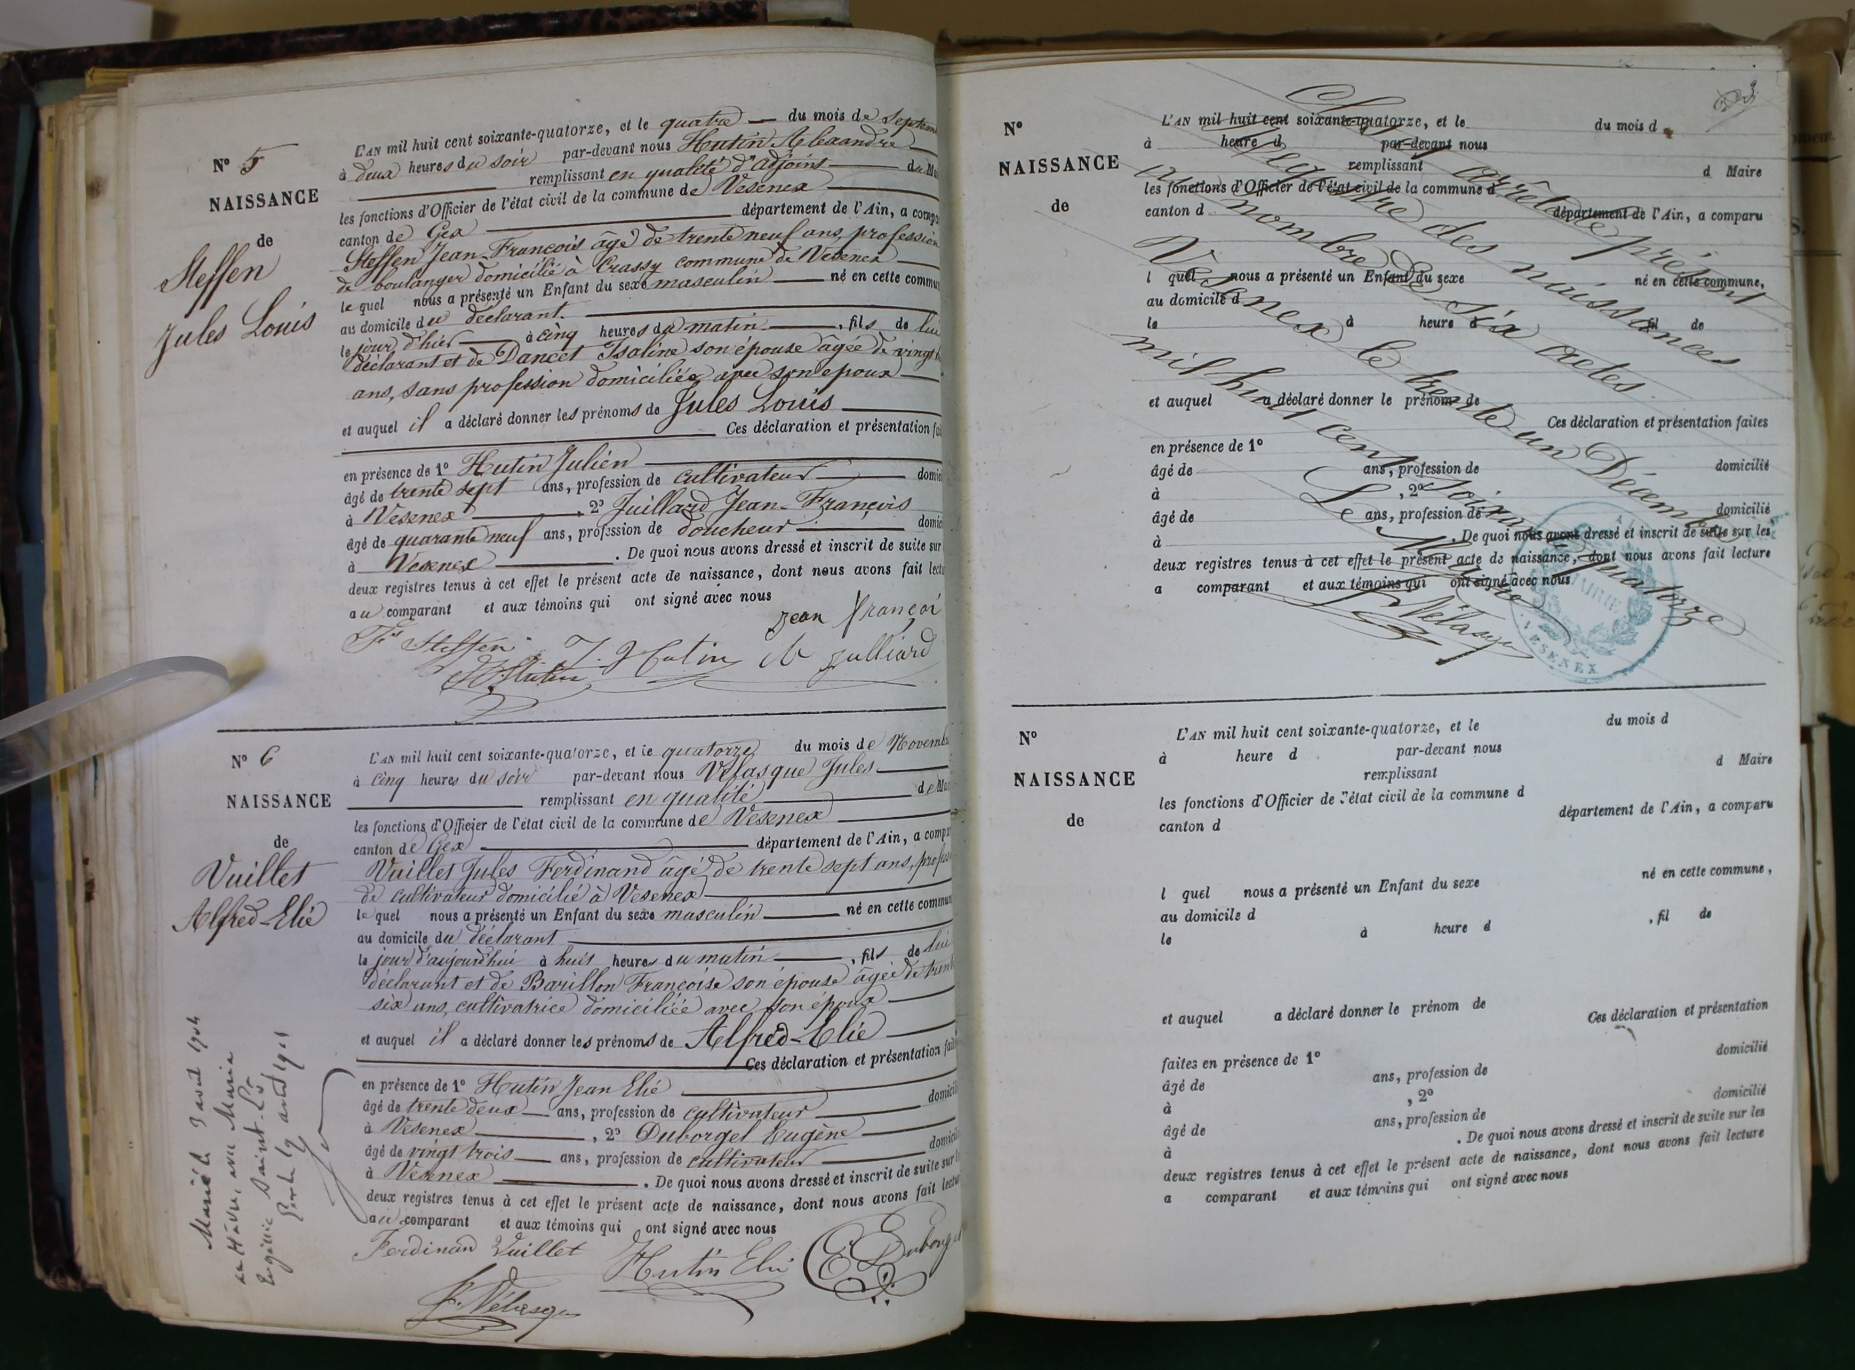 N° 5
NAISSANCE
de
Steffen
Jules Louis
L'AN mil huit cent soixante-quatorze, et le quatre du mois de Septem
à deux heures du soir par-devant nous Hutin Alexandre
remplissant en qualité d'adjoint de Ma
les fonctions d'Officier de l'état civil de la commune de Vesenex
canton de Gex département de l'Ain, a compa
Steffen Jean-François âgé de trente neuf ans, profession
de boulanger domicilié à Crassy commune de Vesenex
le quel nous a présenté un Enfant du sexe masculin né en cette commun
au domicile du déclarant.
le jour d'hier à cinq heures du matin, fils de lui
déclarant et de Dancet Isaline son épouse âgée de vingt
ans, sans profession domiciliée avec son époux
et auquel il a déclaré donner les prénoms de Jules Louis
Ces déclaration et présentation fai
en présence de 1° Hutin Julien
âgé de trente sept ans, profession de cultivateur domici
à Vesenex, 2° Juillard Jean-François
âgé de quarante neuf ans, profession de doucheur domici
à Vesenex. De quoi nous avons dressé et inscrit de suite sur
deux registres tenus à cet effet le présent acte de naissance, dont nous avons fait lectu
au comparant et aux témoins qui ont signé avec nous
Jean françoi
Fs Steffen J. Hutin julliard
A. Hutin
N° 6
NAISSANCE
de
Vuillet
Alfred-Elie
L'AN mil huit cent soixante-quatorze, et le quatorze du mois de Novemb
à cinq heures du soir par-devant nous Vélasque Jules
remplissant en qualité de Mai
les fonctions d'Officier de l'état civil de la commune de Vesenex
canton de Gex département de l'Ain, a compa
Vuillet Jules Ferdinand âgé de trente sept ans, profess
de cultivateur domicilié à Vesenex
le quel nous a présenté un Enfant du sexe masculin né en cette commun
au domicile du déclarant
le jour d'aujourd'hui à huit heures du matin, fils de lui
déclarant et de Barillon Françoise son épouse âgée de trent
six ans, cultivatrice domiciliée avec son époux
et auquel il a déclaré donner les prénoms de Alfred-Elie
Ces déclaration et présentation fait
en présence de 1° Hutin Jean Elie
âgé de trente deux ans, profession de cultivateur domicili
à Vesenex, 2° Duborget Eugène
âgé de vingt trois ans, profession de cultivateur domicili
à Vesenex. De quoi nous avons dressé et inscrit de suite sur l
deux registres tenus à cet effet le présent acte de naissance, dont nous avons fait lectur
au comparant et aux témoins qui ont signé avec nous
Ferdinan Vuillet Hutin Elie E Duborget
J. Vélasque
Marié le 3 avril 1904
au Havre, avec Maria
Eugénie Saint-
1904
N°
NAISSANCE
de
L'AN mil huit cent soixante-quatorze, et le du mois d
à heure d par-devant nous
remplissant d Maire
les fonctions d'Officier de l'état civil de la commune d
canton d département de l'Ain, a comparu
l quel nous a présenté un Enfant du sexe né en cette commune,
au domicile d
le à heure d fil de
et auquel a déclaré donner le prénom de
Ces déclaration et présentation faites
en présence de 1°
âgé de ans, profession de domicilié
à , 2°
âgé de ans, profession de domicilié
à . De quoi nous avons dressé et inscrit de suite sur les
deux registres tenus à cet effet le présent acte de naissance, dont nous avons fait lecture
a comparant et aux témoins qui ont signé avec nous
Clos et arrêté le présent
Registre des naissances
au nombre de six actes
Vesenex le trente un Décembre
mil huit cent soixante quatorze
Le Maire
J. Vélasque
MAIRIE
VESENEX
N°
NAISSANCE
de
L'AN mil huit cent soixante-quatorze, et le du mois d
à heure d par-devant nous
remplissant d Maire
les fonctions d'Officier de l'état civil de la commune d
canton d département de l'Ain, a comparu
l quel nous a présenté un Enfant du sexe né en cette commune,
au domicile d
le à heure d , fil de
et auquel a déclaré donner le prénom de
Ces déclaration et présentation
faites en présence de 1°
âgé de ans, profession de domicilié
à , 2°
âgé de ans, profession de domicilié
à . De quoi nous avons dressé et inscrit de suite sur les
deux registres tenus à cet effet le présent acte de naissance, dont nous avons fait lecture
a comparant et aux témoins qui ont signé avec nous